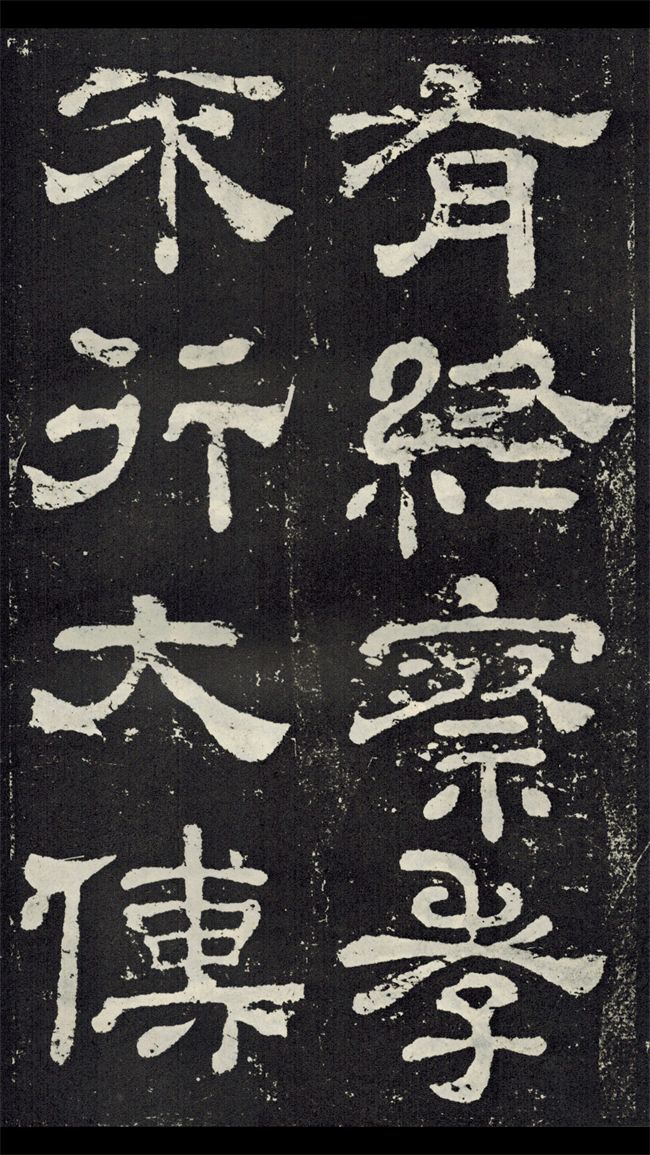 有經察孝
不行大傅